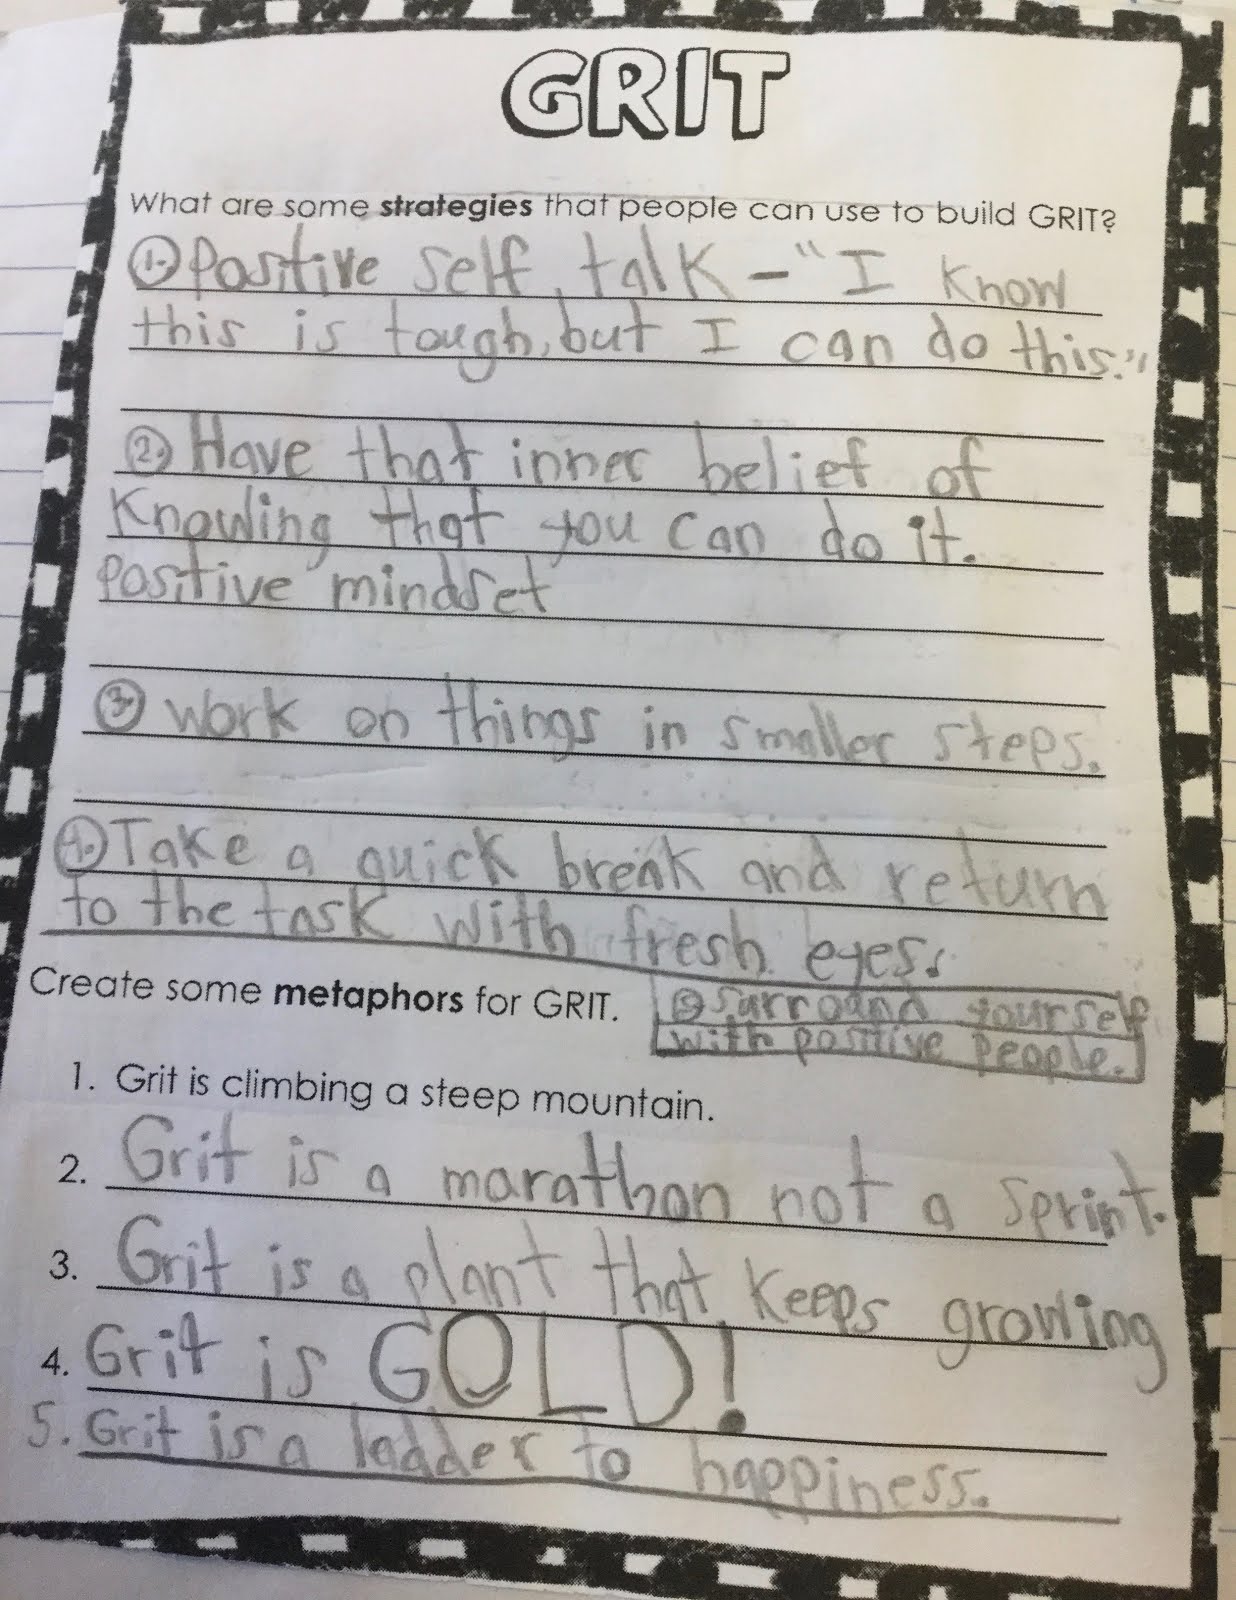 GRIT
What are some strategies that people can use to build GRIT?
1. Positive self talk - "I know
this is tough, but I can do this."
2. Have that inner belief of
knowing that you can do it.
positive mindset
3. Work on things in smaller steps.
4. Take a quick break and return
to the task with fresh eyes.
Create some metaphors for GRIT.
5. Surround yourself
with positive people.
1. Grit is climbing a steep mountain.
2. Grit is a marathon not a sprint.
3. Grit is a plant that keeps growing
4. Grit is GOLD!
5. Grit is a ladder to happiness.